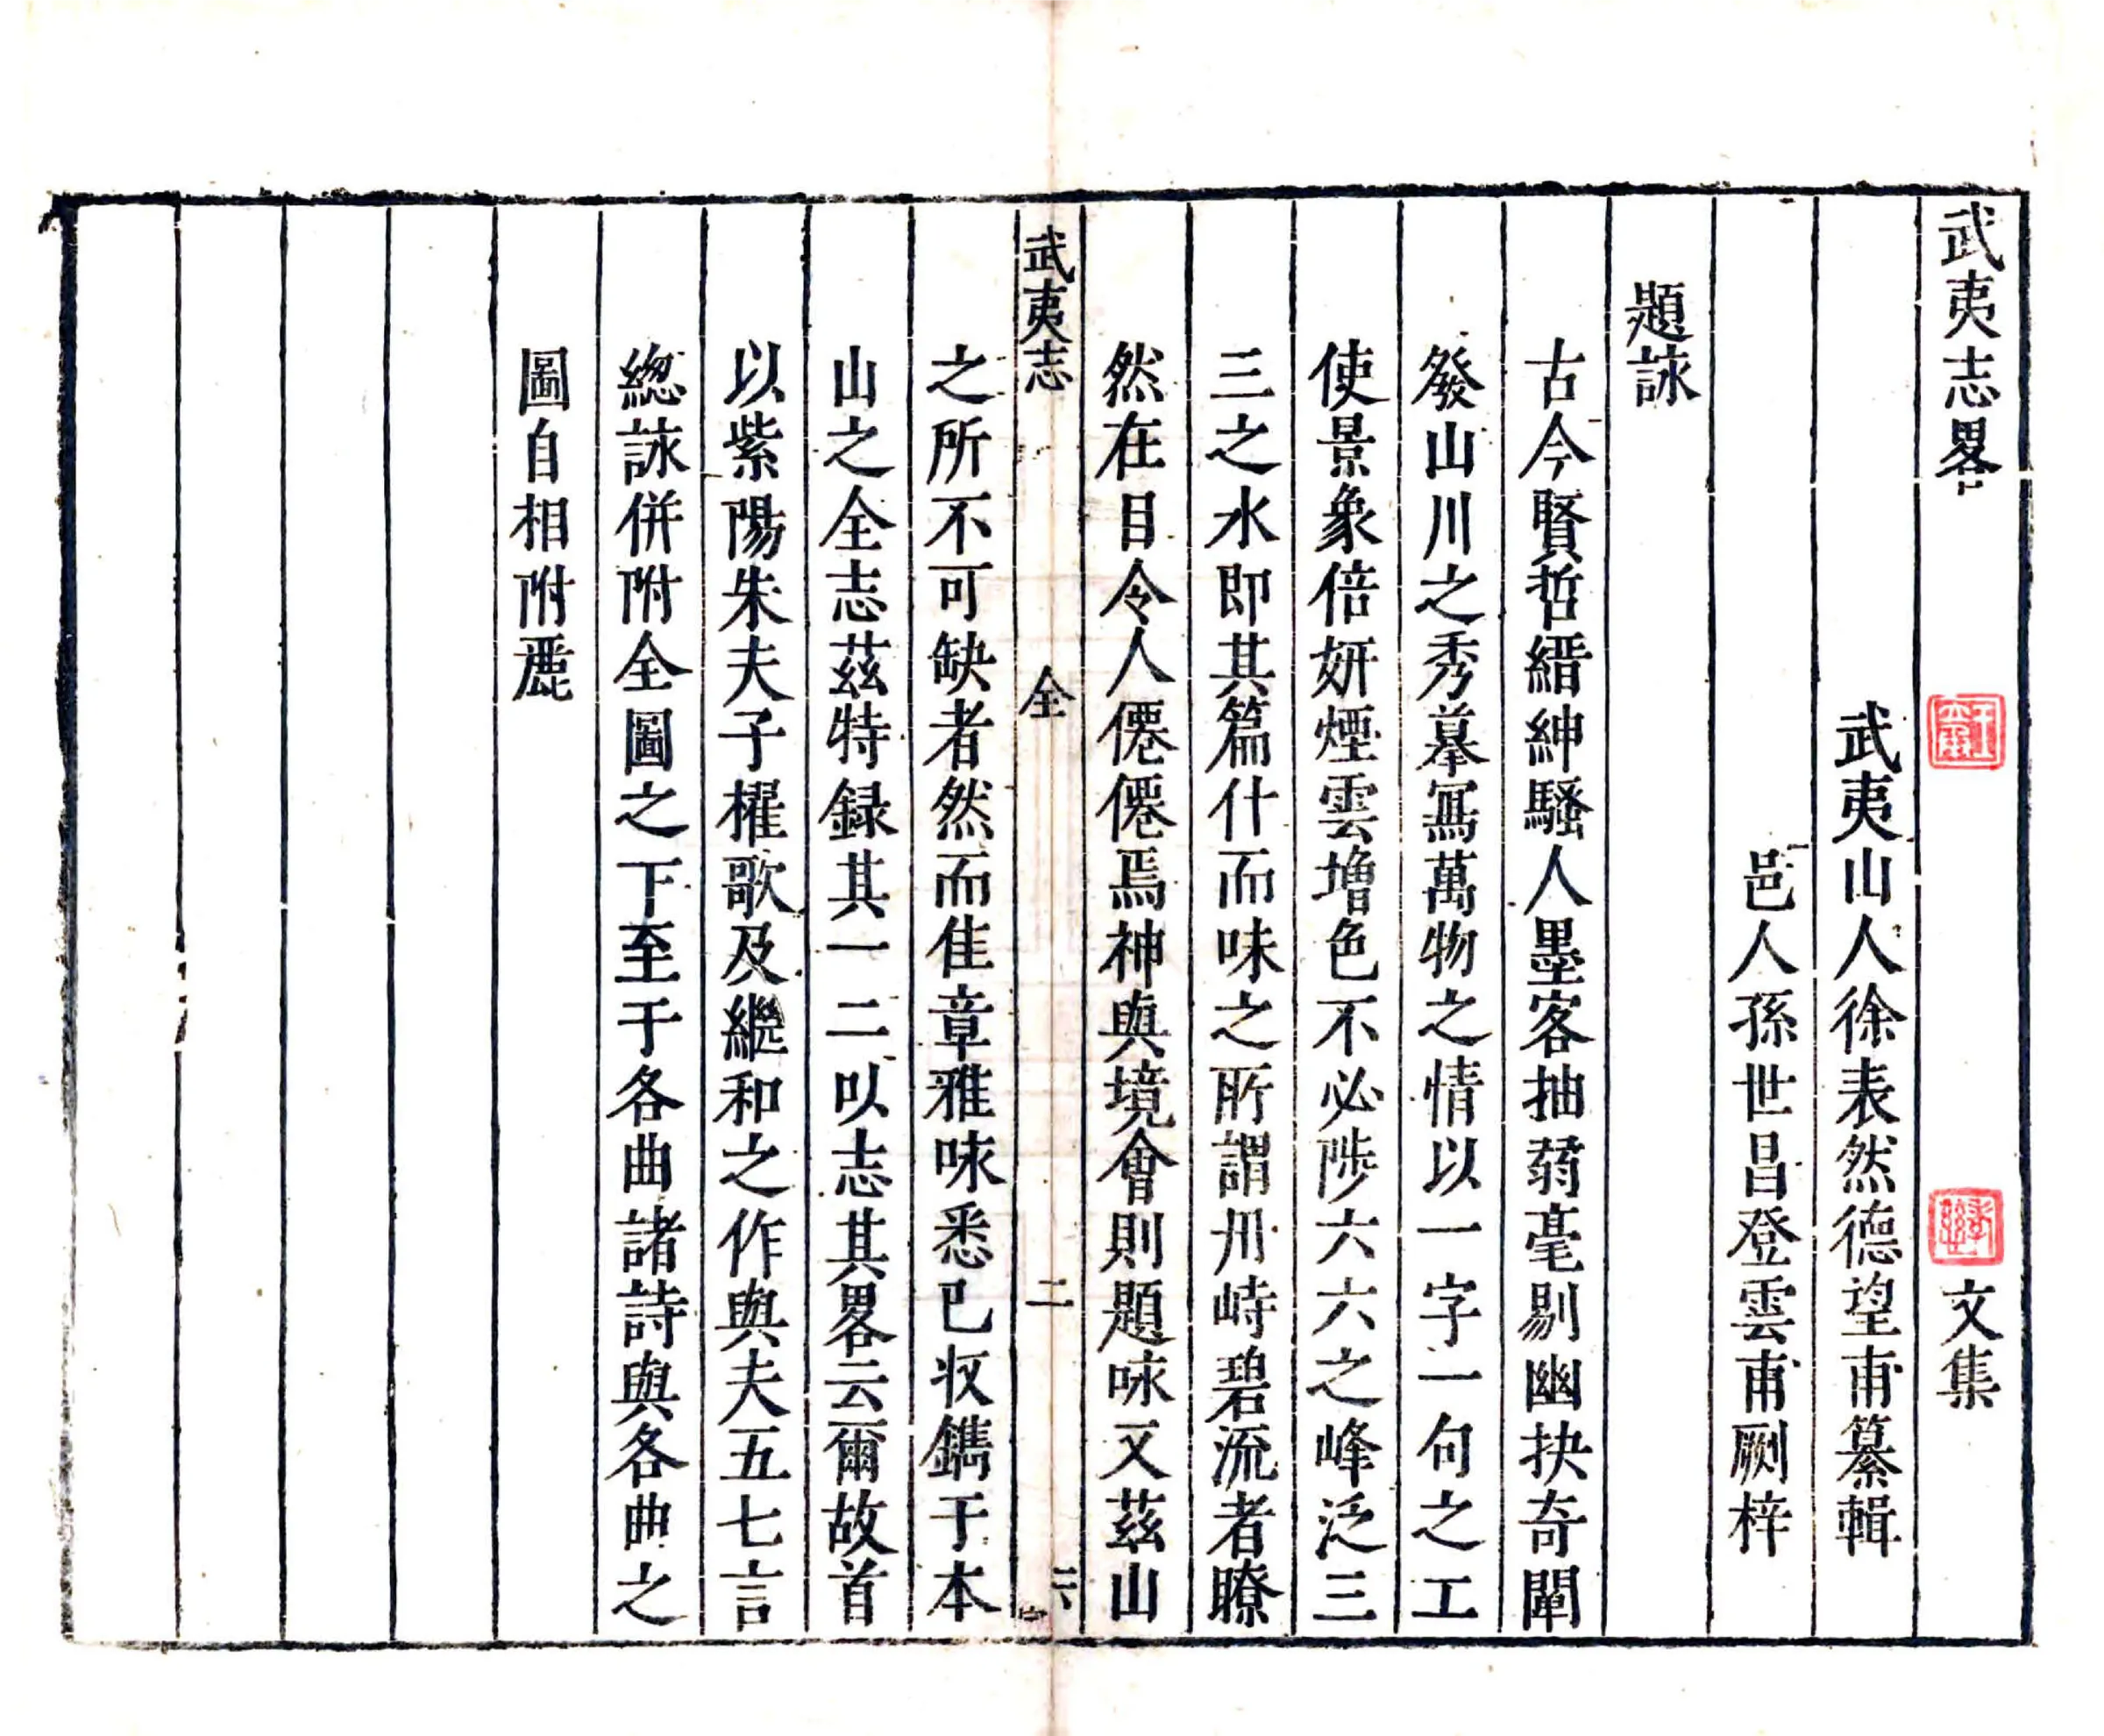 武夷志畧 文集
武夷山人徐表然德望甫纂輯
邑人孫世昌登雲甫劂梓
題詠
古今賢哲縉紳騷人墨客抽弱毫剔幽抉奇闡
發山川之秀摹寫萬物之情以一字一句之工
使景象倍妍煙雲增色不必陟六六之峰泛三
三之水即其篇什而味之所謂丹峙碧流者瞭
然在目令人僊僊焉神與境會則題咏又茲山
武夷志 全 二
之所不可缺者然而佳章雅咏悉已収鐫于本
山之全志茲特録其一二以志其畧云爾故首
以紫陽朱夫子櫂歌及繼和之作與夫五七言
總詠併附全圖之下至于各曲諸詩與各曲之
圖自相附麗